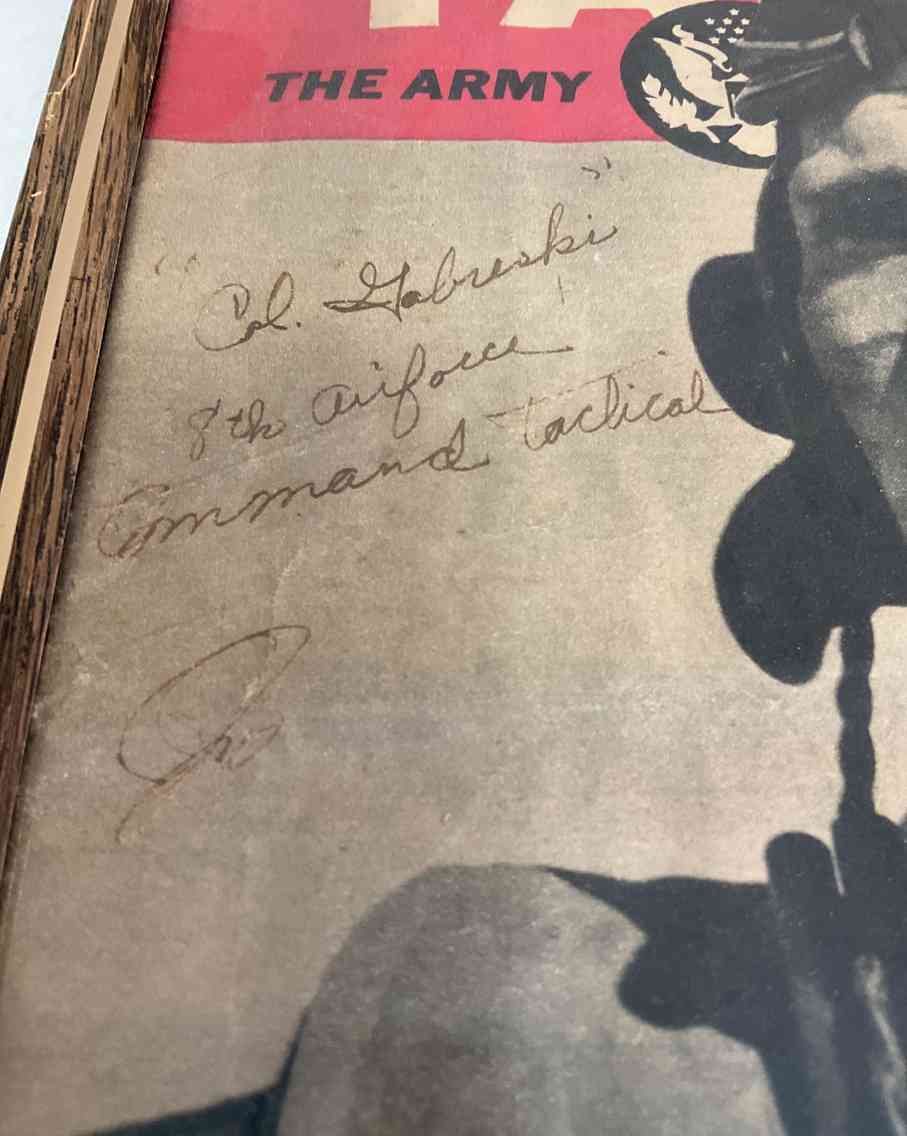 THE ARMY
"Col. Gabreski"
8th Airforce
Command tactical